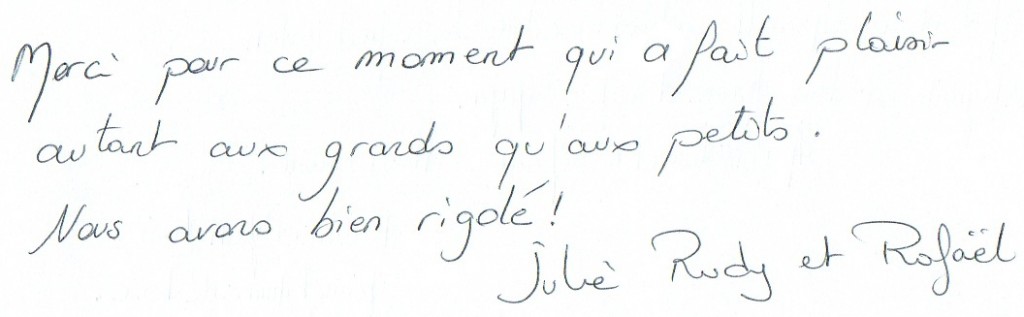 Merci pour ce moment qui a fait plaisir
autant aux grands qu'aux petits.
Nous avons bien rigolé !
Julie Rudy et Rafaël